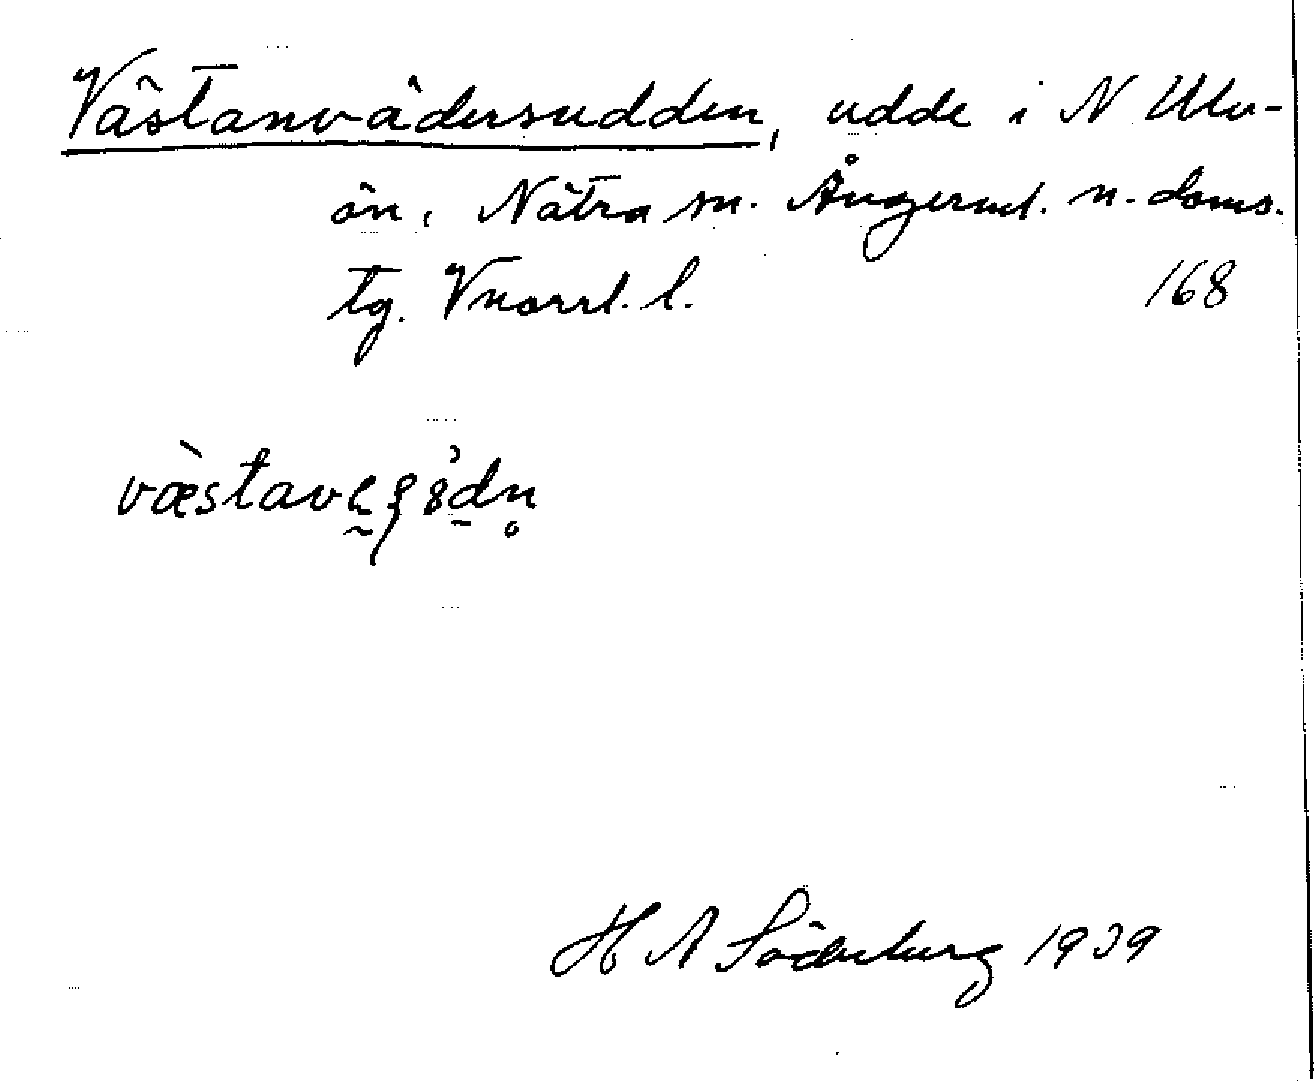 Västanvädersudden, udde i N Ulv-
ön, Nätra sn. Ångerml. n. doms.
tg. Vnorrl. l. 168
væ̀stav
H A Söderberg 1939